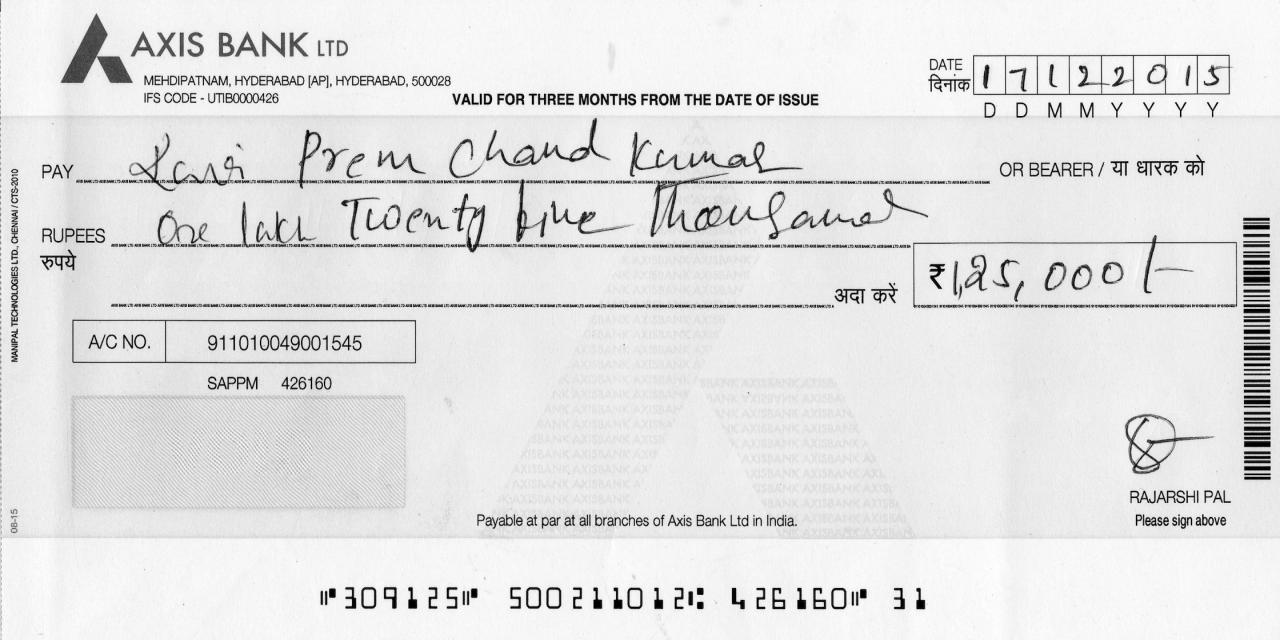 AXIS BANK LTD
MEHDIPATNAM, HYDERABAD [AP], HYDERABAD, 500028
IFS CODE - UTIB0000426
VALID FOR THREE MONTHS FROM THE DATE OF ISSUE
DATE
दिनांक
1 7 1 2 2 0 1 5
D D M M Y Y Y Y
PAY Prem Chand Kumar
OR BEARER / या धारक को
RUPEES One lakh Twenty five Thousand
रुपये
अदा करें ₹ 1,25,000/-
A/C NO. 911010049001545
SAPPM 426160
RAJARSHI PAL
Please sign above
Payable at par at all branches of Axis Bank Ltd in India.
MANIPAL TECHNOLOGIES LTD, CHENNAI / CTS-2010
08-15
⑈309125⑈ 500211012⑆ 426160⑈ 31